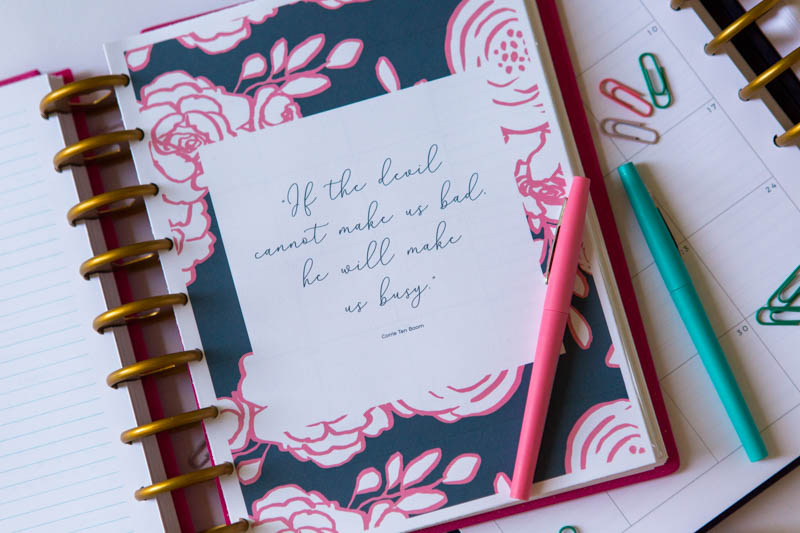 "If the devil
cannot make us bad,
he will make
us busy."
Corrie Ten Boom
10
17
24
23
30